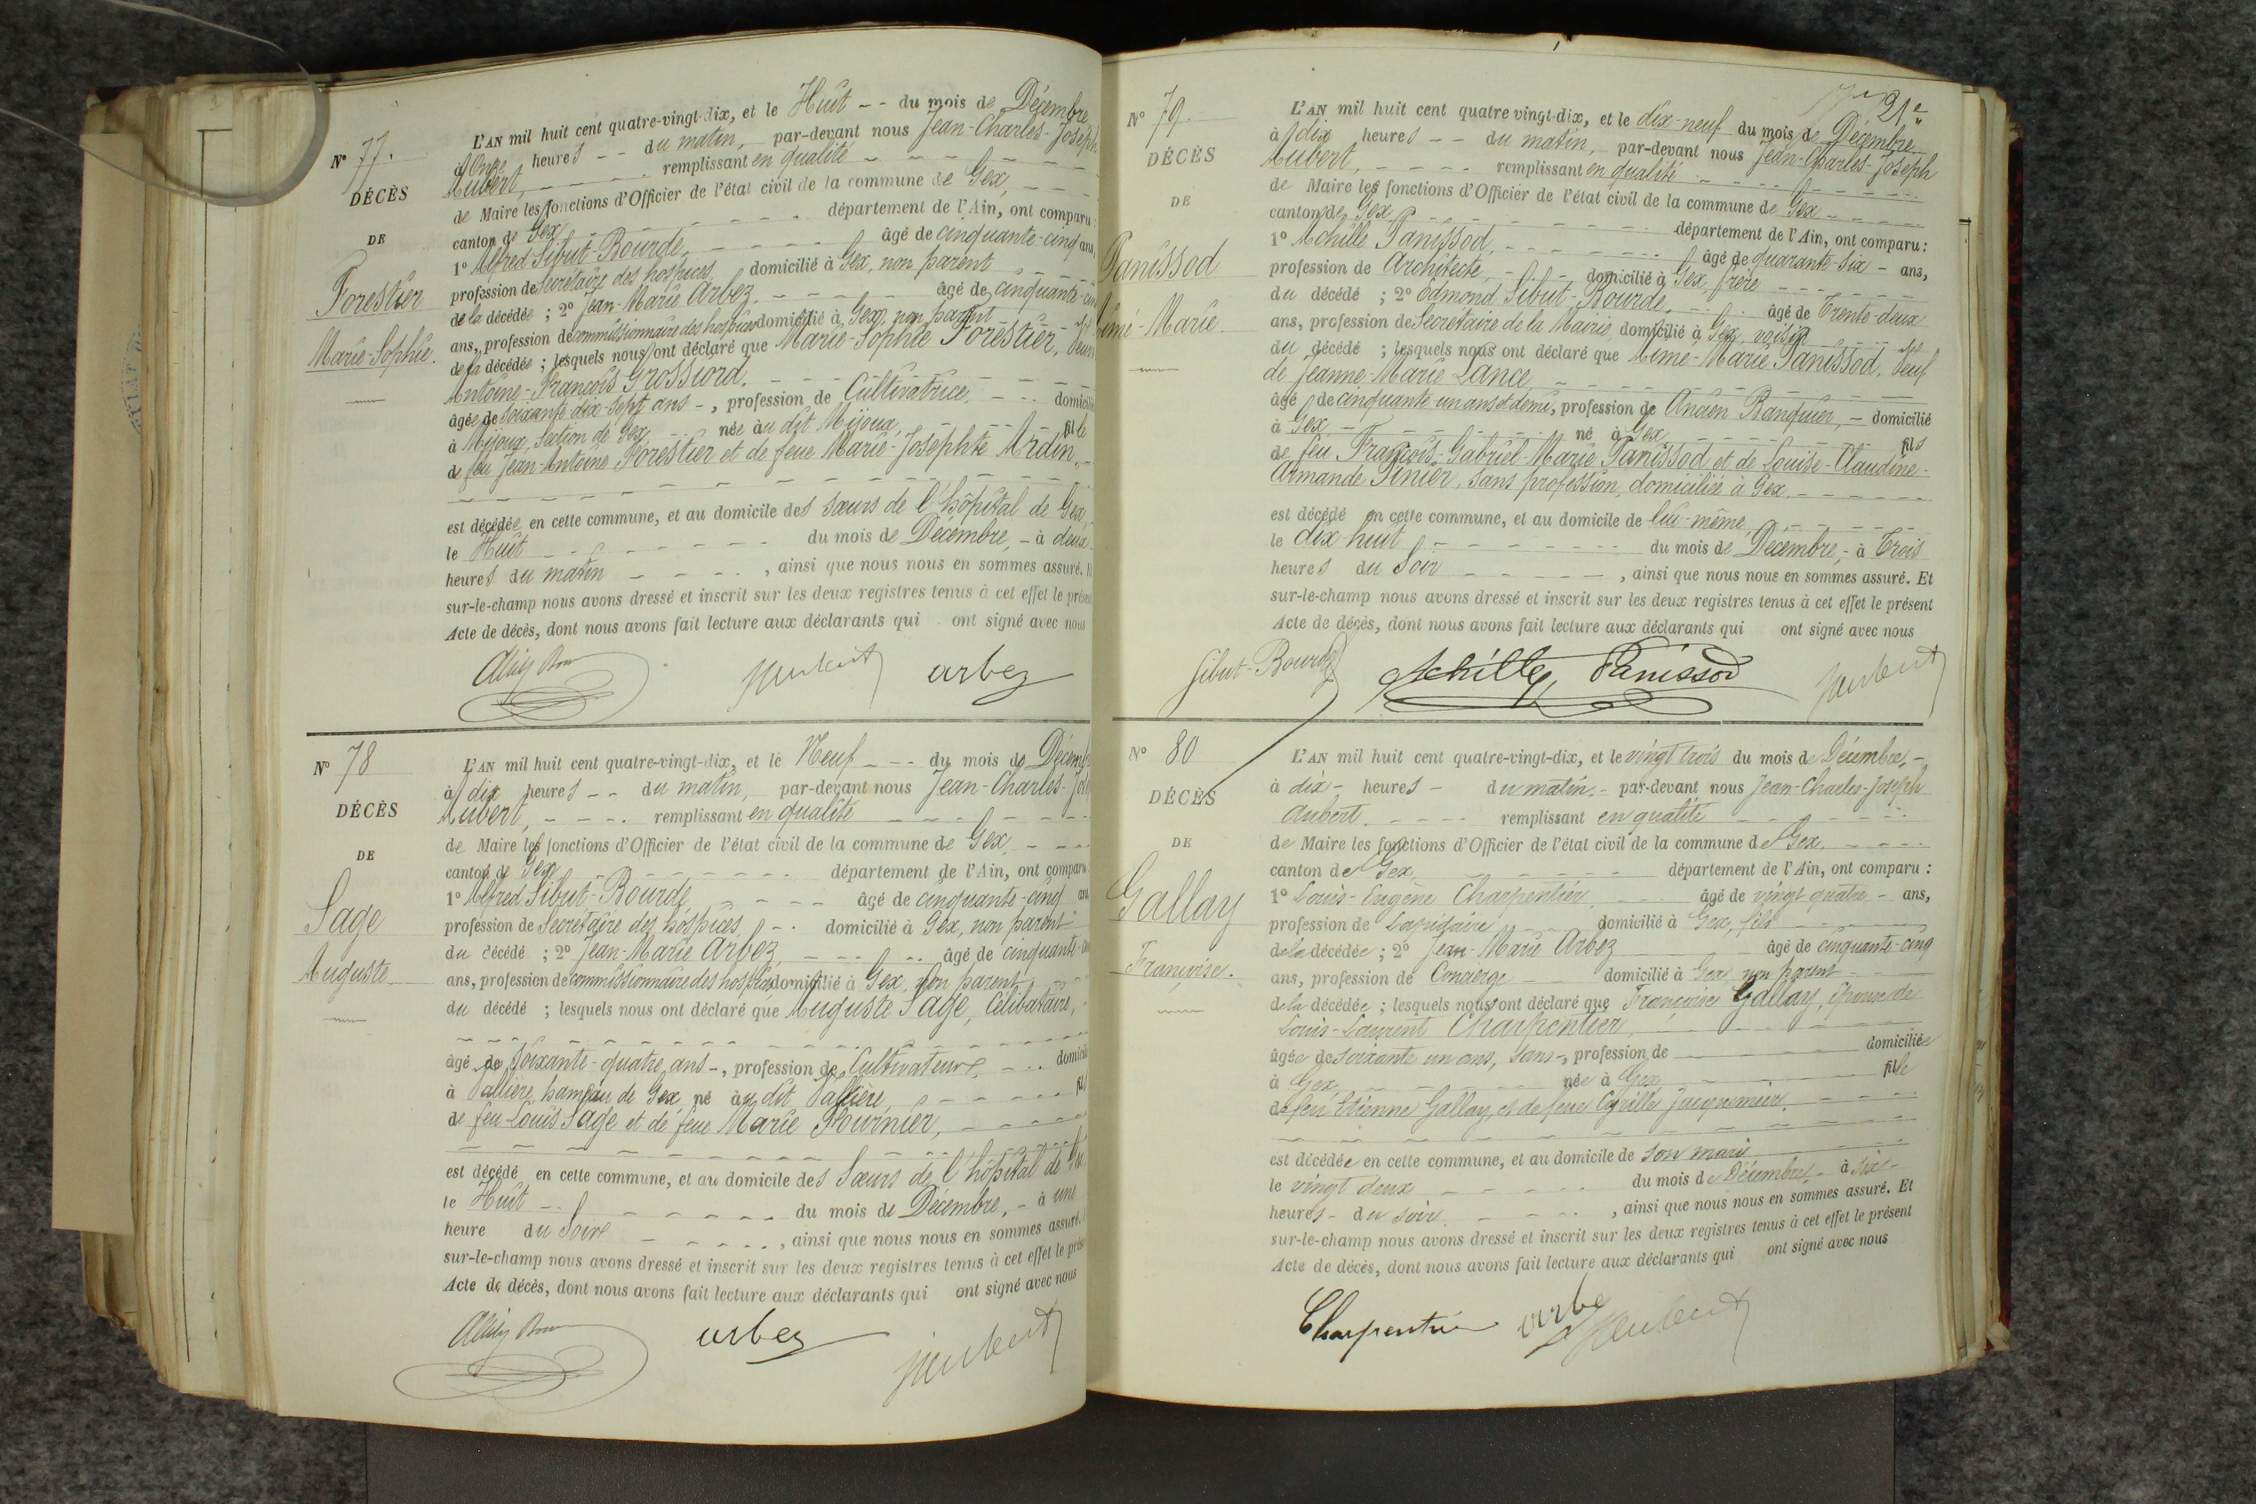 N° 77.
DÉCÈS
DE
Forestier
Marie-Sophie.
L'AN mil huit cent quatre-vingt-dix, et le Huit -- du mois de Décembre
à Onze heures -- du matin, par-devant nous Jean-Charles-Joseph
Aubert, remplissant en qualité
de Maire les fonctions d'Officier de l'état civil de la commune de Gex,
canton de Gex département de l'Ain, ont comparu :
1° Alfred Sibut-Bourde, âgé de cinquante-cinq ans,
profession de Secrétaire des hospices, domicilié à Gex, non parent
de la décédée ; 2° Jean-Marie Arbez, âgé de cinquante-cinq
ans, profession de commissionnaire des hospices domicilié à Gex, non parent
de la décédée ; lesquels nous ont déclaré que Marie-Sophie Forestier, Veuve
Antoine-François Grossiord.
âgée de soixante dix-sept ans -, profession de Cultivatrice, domicilié
à Mijoux, section de Gex née au dit Mijoux, fille
de feu Jean-Antoine Forestier et de feue Marie-Josephte Ardin,
est décédée en cette commune, et au domicile des sœurs de l'hôpital de Gex,
le Huit du mois de Décembre, - à deux
heures du matin , ainsi que nous nous en sommes assuré.
sur-le-champ nous avons dressé et inscrit sur les deux registres tenus à cet effet le présent
Acte de décès, dont nous avons fait lecture aux déclarants qui ont signé avec nous
Aubert arbez
N° 78
DÉCÈS
DE
Sage
Auguste
L'AN mil huit cent quatre-vingt-dix, et le Neuf --- du mois de Décembre
à dix heures -- du matin, par-devant nous Jean-Charles-Jos
Aubert, remplissant en qualité
de Maire les fonctions d'Officier de l'état civil de la commune de Gex
canton de Gex département de l'Ain, ont comparu
1° Alfred Sibut-Bourde âgé de cinquante-cinq ans
profession de Secrétaire des hospices, domicilié à Gex, non parent
du décédé ; 2° Jean-Marie Arbez, âgé de cinquante-cinq
ans, profession de commissionnaire des hospices domicilié à Gex, non parent
du décédé ; lesquels nous ont déclaré que Auguste Sage, Célibataire,
âgé de Soixante-quatre ans -, profession de Cultivateur, domicilié
à Pallière, hameau de Gex né au dit Pallière, fils
de feu Louis Sage et de feue Marie Fournier,
est décédé en cette commune, et au domicile des Sœurs de l'hôpital de Gex
le Huit du mois de Décembre, - à une
heure du Soir , ainsi que nous nous en sommes assuré.
sur-le-champ nous avons dressé et inscrit sur les deux registres tenus à cet effet le présent
Acte de décès, dont nous avons fait lecture aux déclarants qui ont signé avec nous
arbez Aubert
21e
N° 79.
DÉCÈS
DE
Panissod
Aimé-Marie.
L'AN mil huit cent quatre vingt-dix, et le dix-neuf du mois de Décembre
à dix heures -- du matin, par-devant nous Jean-Charles-Joseph
Aubert, remplissant en qualité
de Maire les fonctions d'Officier de l'état civil de la commune de Gex
canton de Gex département de l'Ain, ont comparu :
1° Achille Panissod, âgé de quarante-six - ans,
profession de Architecte, domicilié à Gex, frère
du décédé ; 2° Edmond Sibut-Bourde, âgé de Trente-deux
ans, profession de Secrétaire de la Mairie, domicilié à Gex, voisin
du décédé ; lesquels nous ont déclaré que Aimé-Marie Panissod, Veuf
de Jeanne-Marie Lance
âgé de cinquante un ans et demi, profession de Ancien Banquier, - domicilié
à Gex, né à Gex fils
de feu François-Gabriel-Marie Panissod et de Louise-Claudine-
Armande Pinier, sans profession, domiciliée à Gex.
est décédé en cette commune, et au domicile de lui-même
le dix-huit du mois de Décembre, - à Trois
heures du Soir , ainsi que nous nous en sommes assuré. Et
sur-le-champ nous avons dressé et inscrit sur les deux registres tenus à cet effet le présent
Acte de décès, dont nous avons fait lecture aux déclarants qui ont signé avec nous
Sibut-Bourde Achille Panissod Aubert
N° 80
DÉCÈS
DE
Gallay
Françoise.
L'AN mil huit cent quatre-vingt-dix, et le vingt trois du mois de Décembre, -
à dix - heures - du matin. - par-devant nous Jean-Charles-Joseph
Aubert. remplissant en qualité
de Maire les fonctions d'Officier de l'état civil de la commune de Gex
canton de Gex, département de l'Ain, ont comparu :
1° Louis-Eugène Charpentier, âgé de vingt quatre - ans,
profession de Lapidaire domicilié à Gex, fils
de la décédée ; 2° Jean-Marie Arbez âgé de cinquante-cinq
ans, profession de Concierge domicilié à Gex non parent
de la décédée ; lesquels nous ont déclaré que Françoise Gallay, épouse de
Louis-Laurent Charpentier
âgée de soixante un ans, sans -, profession de domiciliée
à Gex née à Gex fille
de feu Etienne Gallay, et de feue Cyrille Jacquinier.
est décédée en cette commune, et au domicile de son mari
le vingt deux du mois de Décembre, - à six -
heures - du soir. , ainsi que nous nous en sommes assuré. Et
sur-le-champ nous avons dressé et inscrit sur les deux registres tenus à cet effet le présent
Acte de décès, dont nous avons fait lecture aux déclarants qui ont signé avec nous
Charpentier arbe Aubert